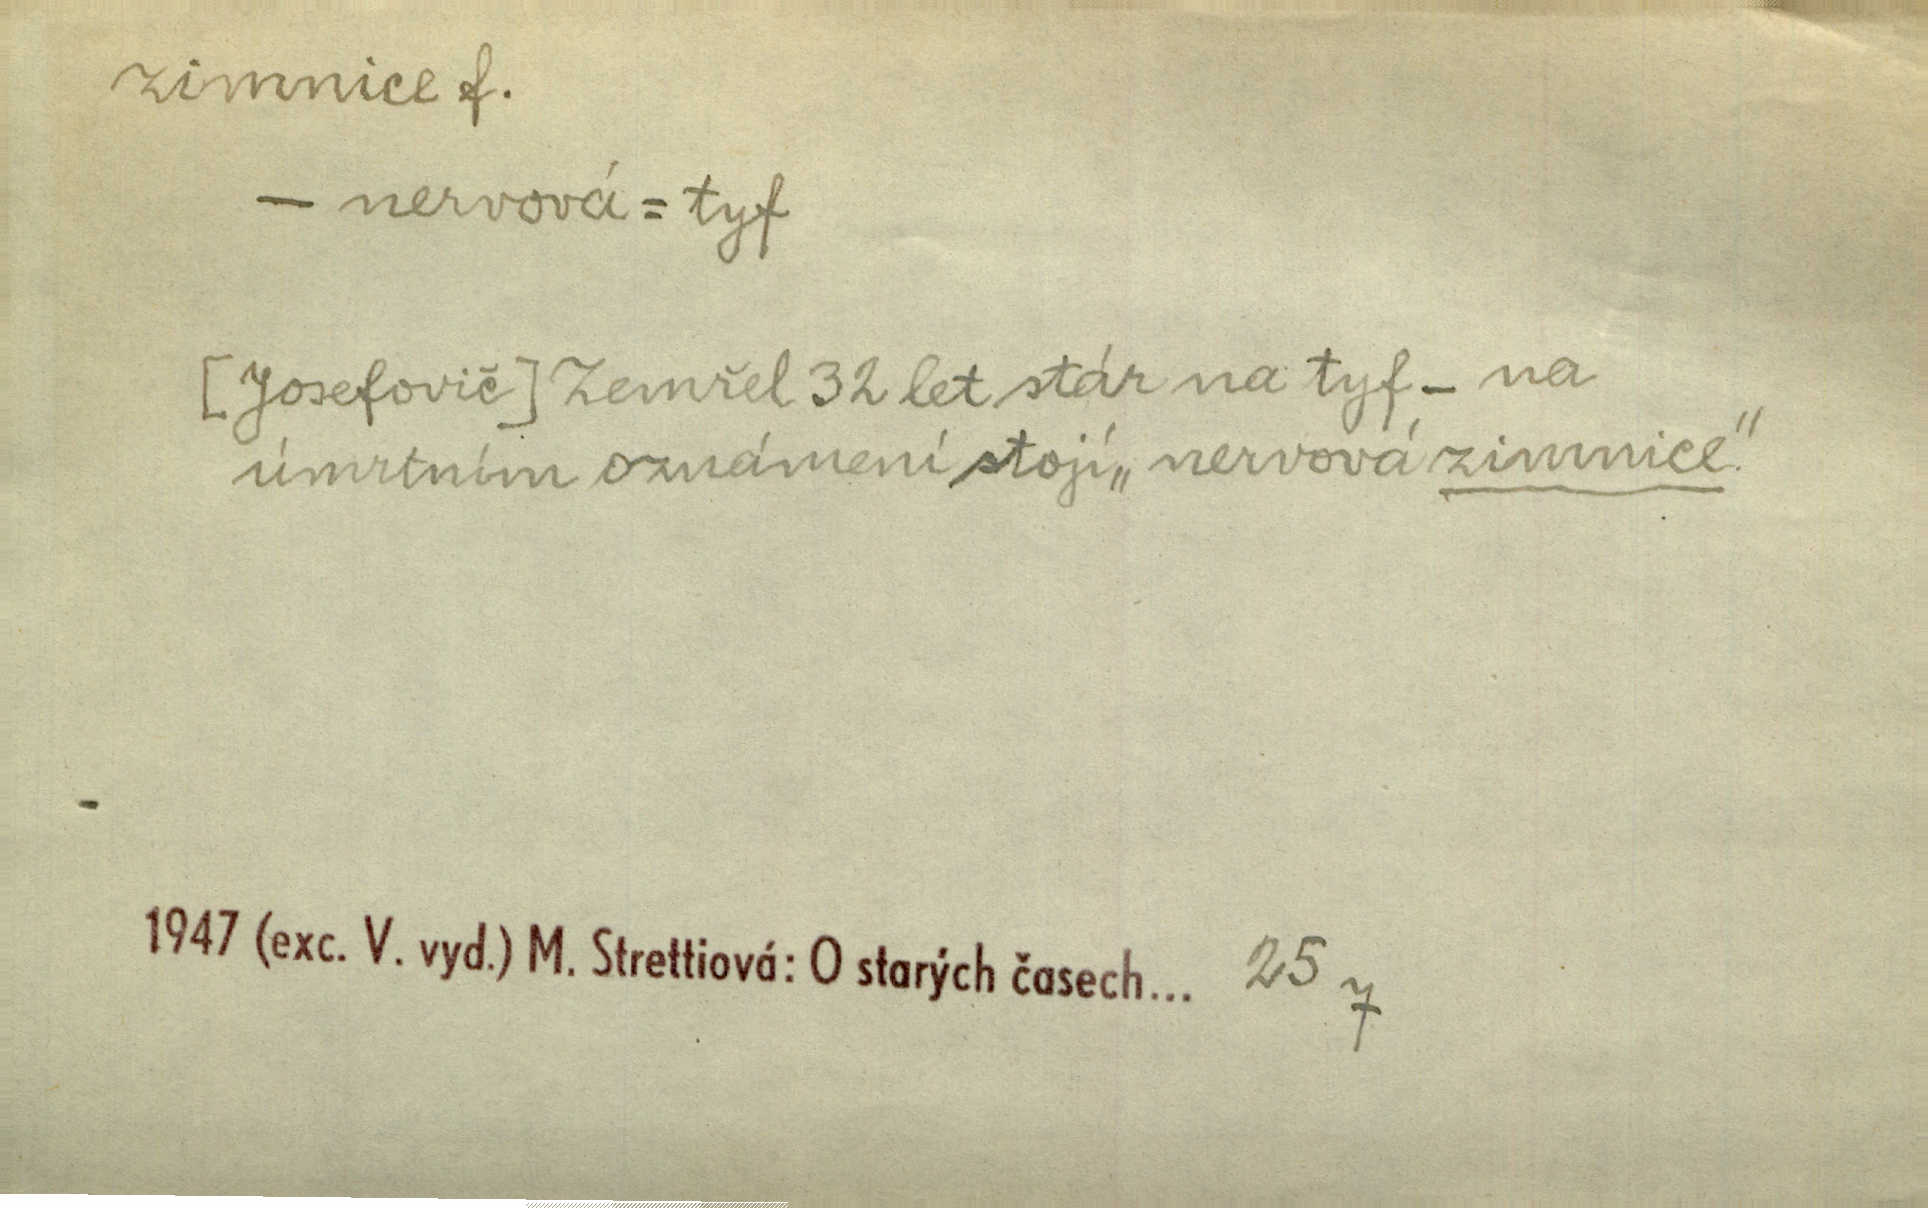 zimnice f.
— nervová = tyf
[Josefovič] Zemřel 32 let stár na tyf – na
úmrtním oznámení stojí „nervová zimnice“.
1947 (exc. V. vyd.) M. Strettiová: O starých časech... 25
7